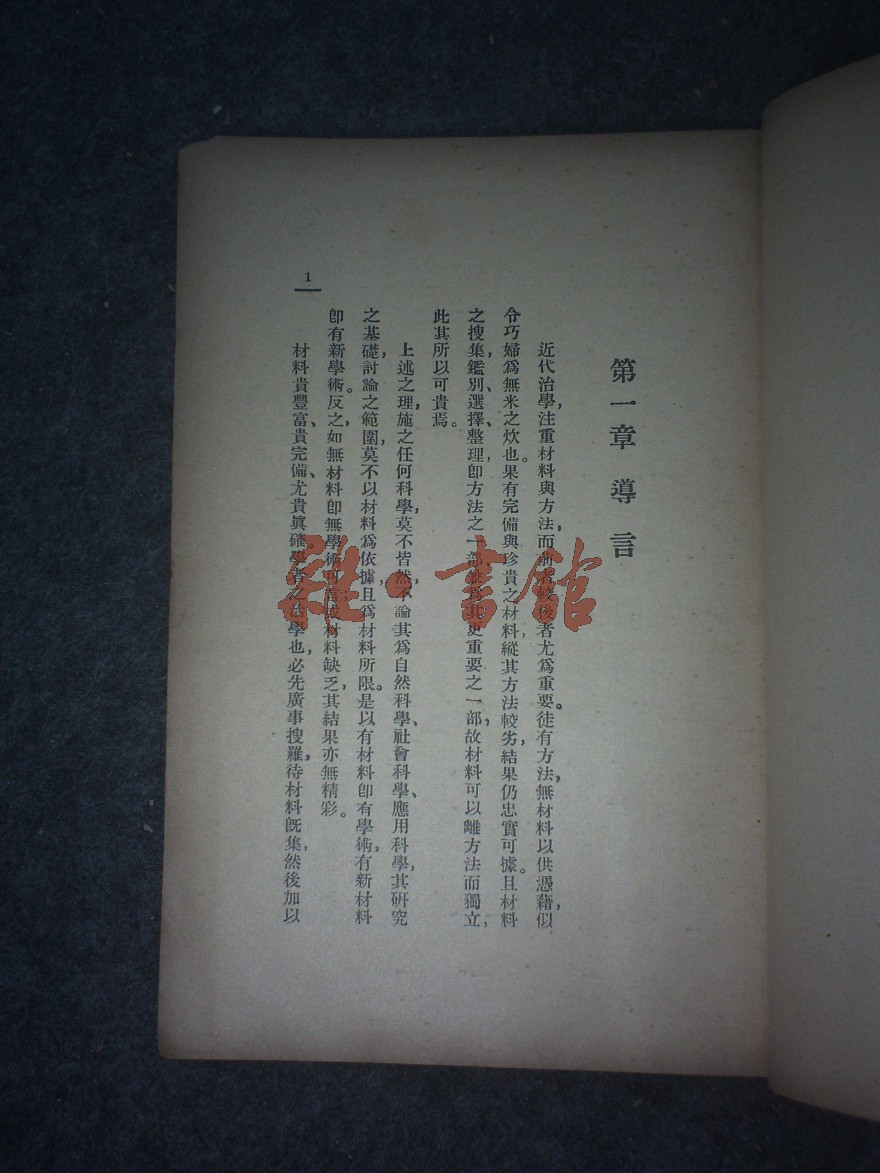 第一章 導言
近代治學，注重材料與方法，而前者較後者尤爲重要。徒有方法，無材料以供憑藉，似
令巧婦爲無米之炊也。果有完備與珍貴之材料，縱其方法較劣，結果仍忠實可據。且材料
之搜集、鑑別、選擇、整理、卽方法之一部，其更重要之一部，故材料可以離方法而獨立，
此其所以可貴焉。
上述之理，施之任何科學，莫不皆然，不論其爲自然科學、社會科學、應用科學，其研究
之基礎，討論之範圍，莫不以材料爲依據，且爲材料所限。是以有材料卽有學術，有新材料
卽有新學術。反之，如無材料卽無學術可言；或材料缺乏，其結果亦無精彩。
材料貴豐富、貴完備、尤貴眞確。學者之治學也，必先廣事搜羅，待材料旣集，然後加以
1
雜·書館